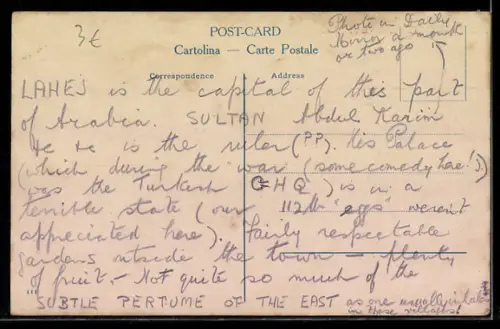 3€
POST-CARD
Cartolina — Carte Postale
Photo in Daily
Mirror a month
or two ago
Correspondence
Address
LAHEJ is the capital of this part
of Arabia. SULTAN Abdul Karim
etc etc is the ruler (PP). His Palace
(which during the war (some comedy here!)
was the Turkish GHQ) is in a
terrible state (our 112lb "eggs" weren't
appreciated here). Fairly respectable
gardens outside the town — plenty
of fruit. — Not quite so much of the
SUBTLE PERTUME OF THE EAST as one usually inhales
in these villages!